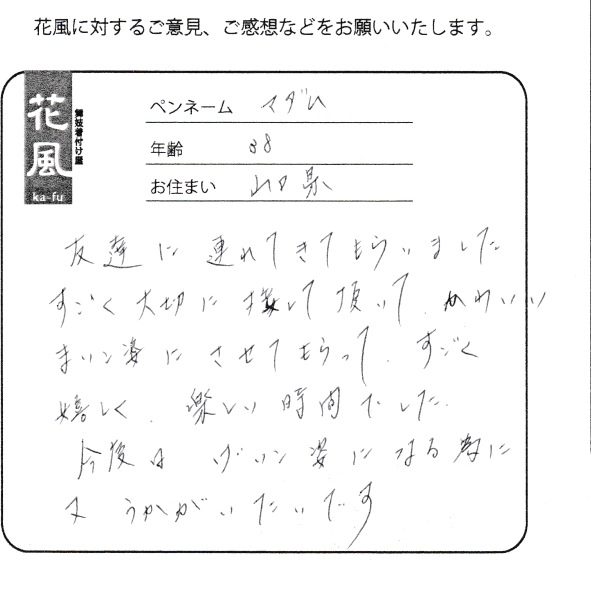 花風に対するご意見、ご感想などをお願いいたします。
花風
舞妓着付け屋
ka-fu
ペンネーム マダム
年齢 38
お住まい 山口県
友達に連れてきてもらいました
すごく大切に接して頂いて、かわいい
まいこ姿にさせてもらって、すごく
嬉しく、楽しい時間でした。
今後は げいこ姿になる為に
又 うかがいたいです